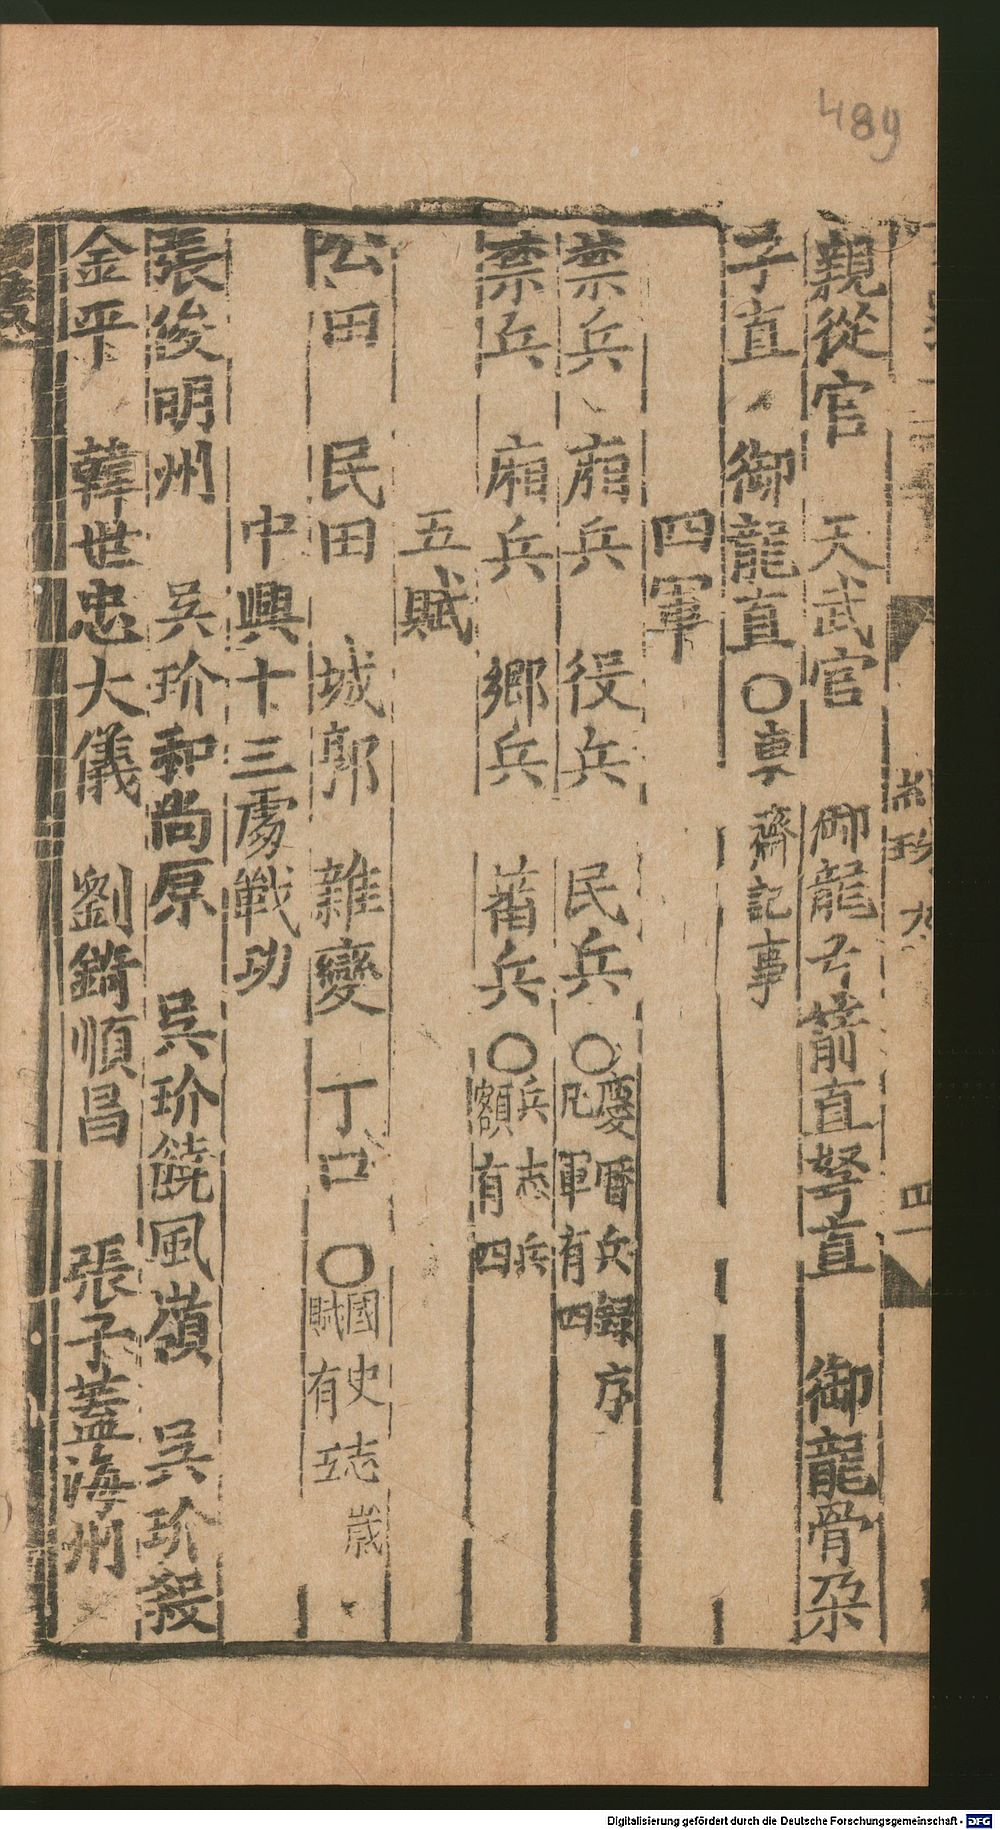 489
親從官　天武官　御龍弓箭直弩直　御龍骨朶
子直　御龍直〇東齋記事
四軍
禁兵　廂兵　役兵　民兵〇慶曆兵錄序
凡軍有四
禁兵　廂兵　鄉兵　蕃兵〇兵志兵
額有四
五賦
公田　民田　城郭　雜變　丁口〇國史志歲
賦有五
中興十三處戰功
張俊明州　吳玠和尚原　吳玠饒風嶺　吳玠殺
金平　韓世忠大儀　劉錡順昌　張子蓋海州
Digitalisierung gefördert durch die Deutsche Forschungsgemeinschaft - DFG